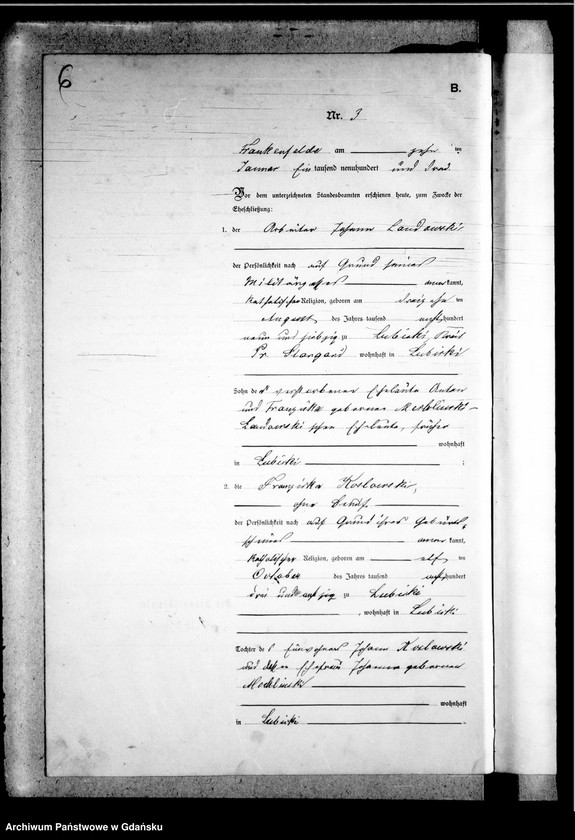 6
B.
Nr. 3
Frankenfelde am zehn ten
Januar Ein tausend neunhundert und drei.
Vor dem unterzeichneten Standesbeamten erschienen heute, zum Zwecke der
Eheschließung:
1. der Arbeiter Johann Landowski
der Persönlichkeit nach auf Grund seines
Militärpasses kannt,
katholischer Religion, geboren am ten
August des Jahres tausend acht hundert
neun und siebzig zu Lubicki, Kreis
Pr. Stargard wohnhaft in Lubicki
Sohn de r verstorbenen Eheleute Anton
und Franziska geborenen
Landowski schen Eheleute, früher
wohnhaft
in Lubicki ;
2. die Franziska Koslowski,
ohne Beruf.
der Persönlichkeit nach auf Grund ihres Geburts
scheines kannt,
katholischer Religion, geboren am elf ten
October des Jahres tausend acht hundert
drei und achtzig zu Lubicki
, wohnhaft in Lubicki
Tochter de s Einwohners Johann Koslowski
und dessen Ehefrau Johanna geborenen
Modlinski
wohnhaft
in Lubicki .
Archiwum Państwowe w Gdańsku